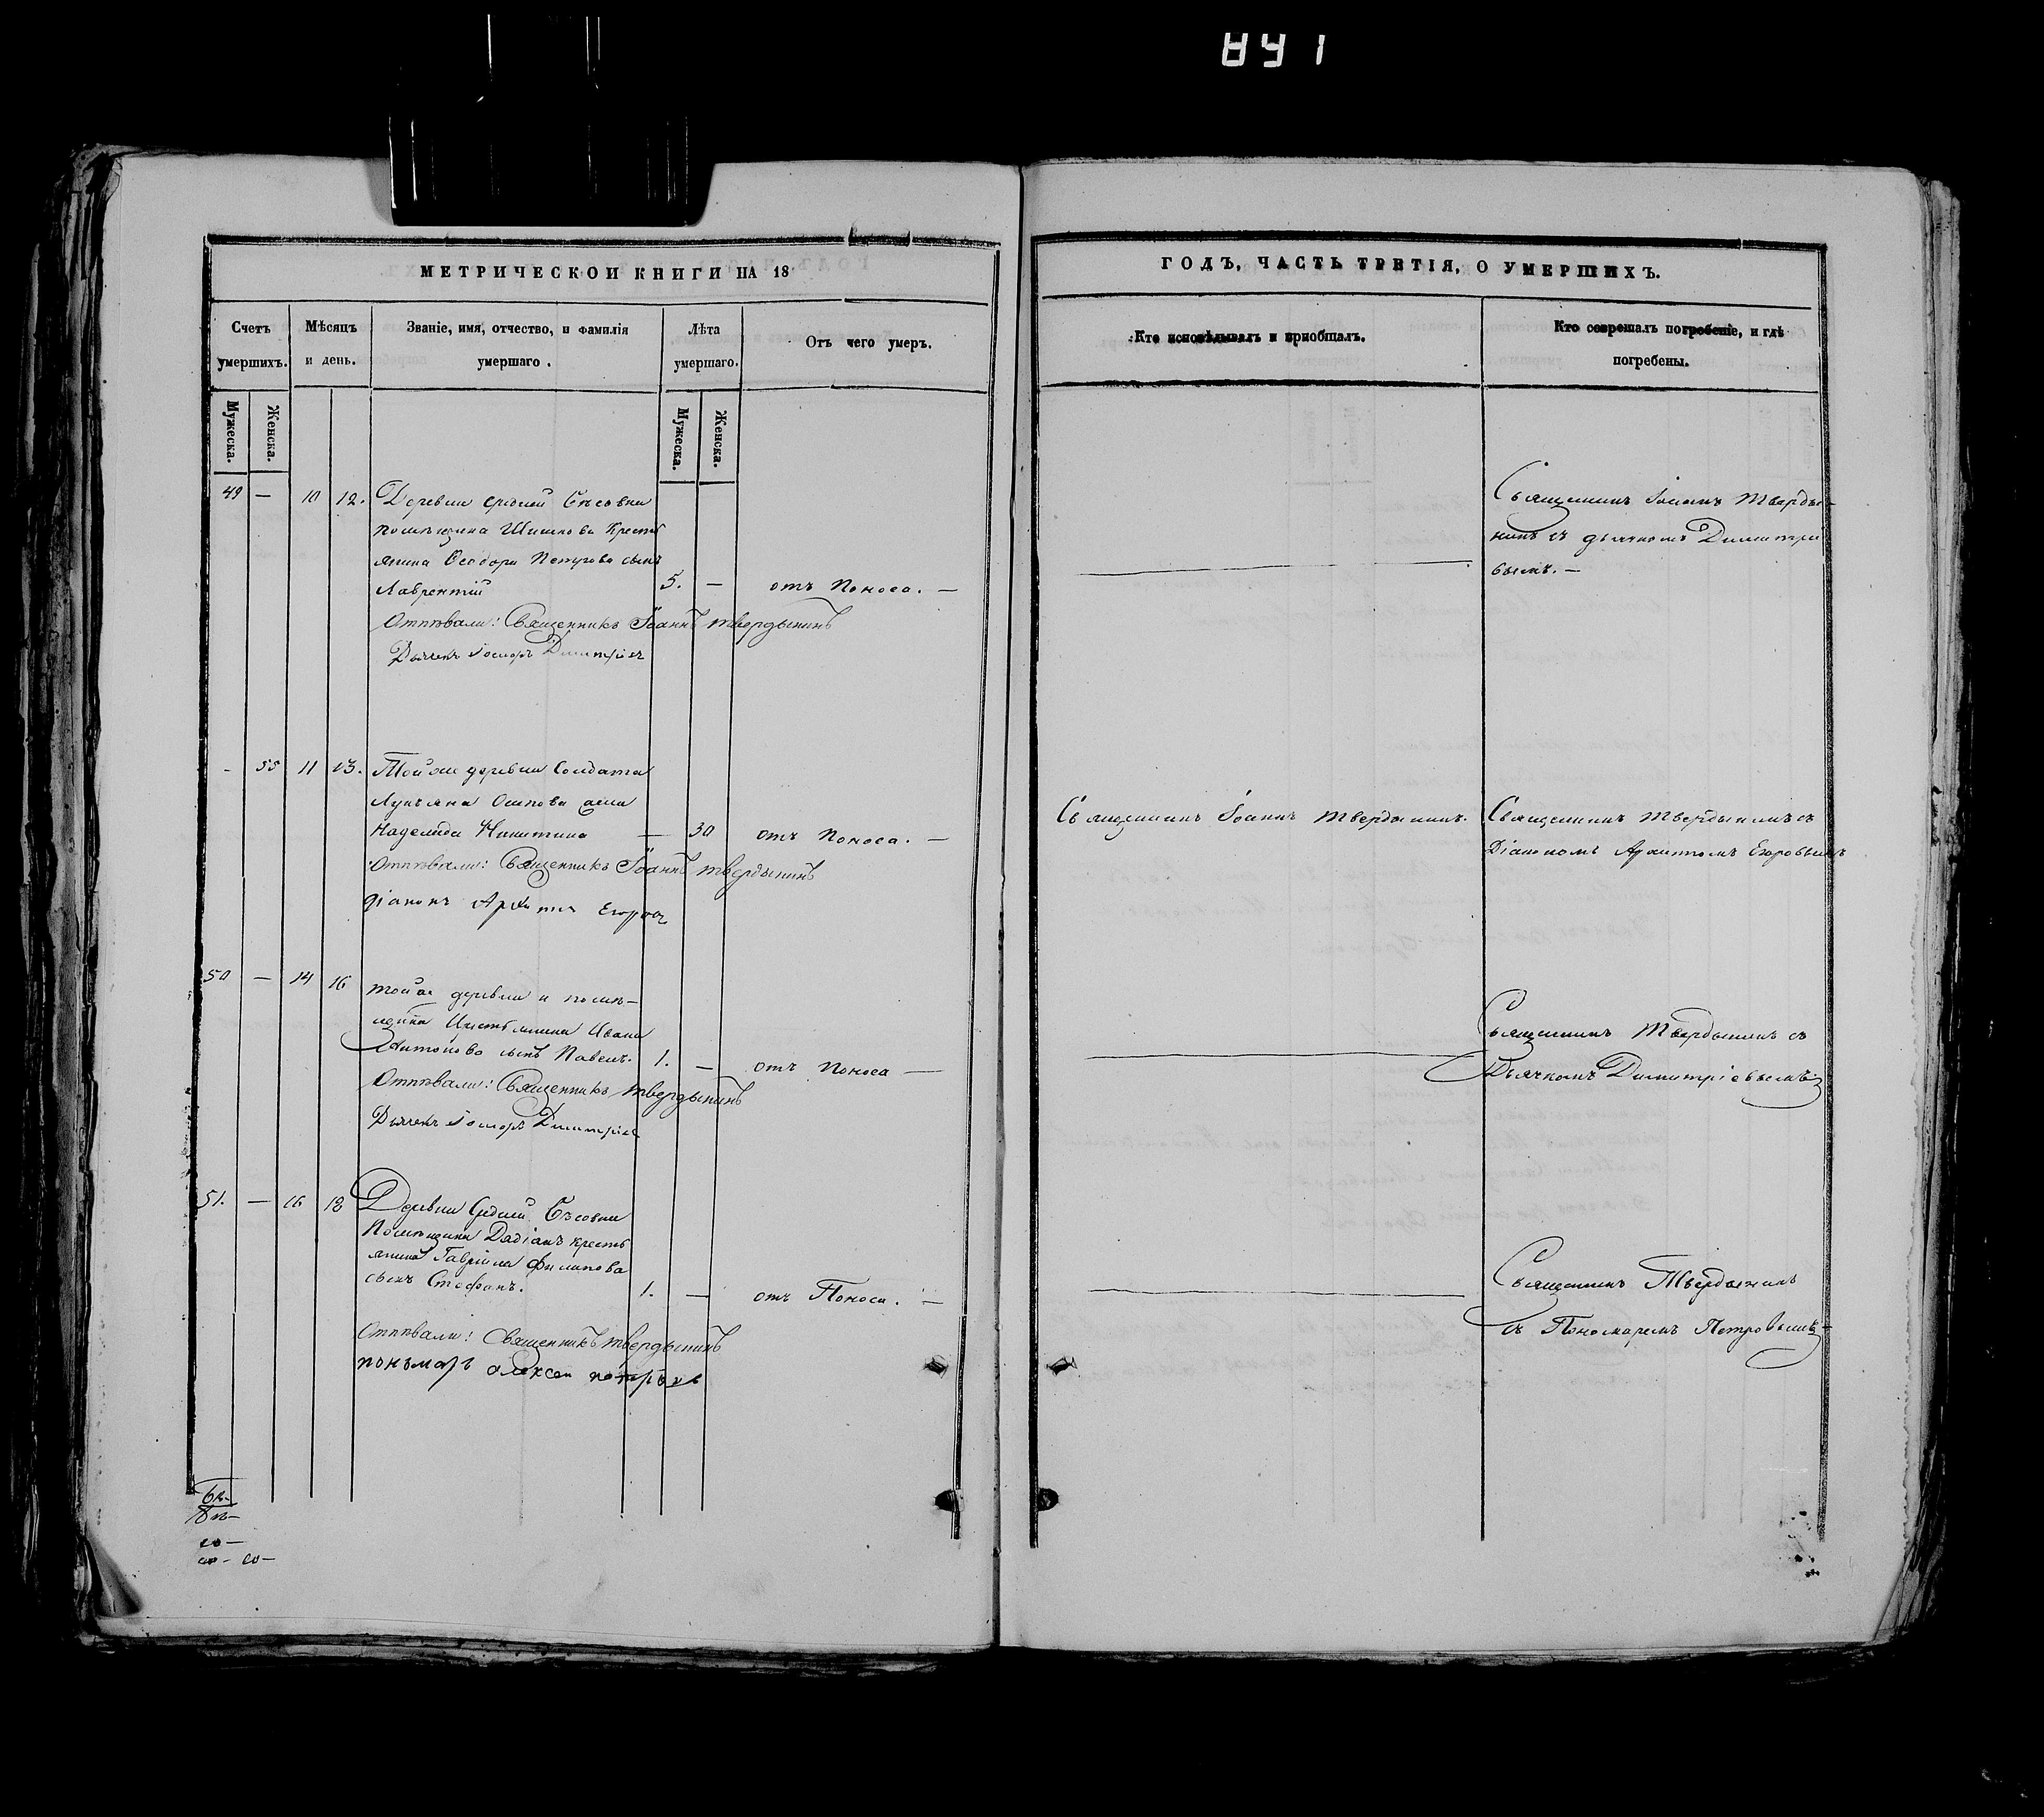 МЕТРИЧЕСКОЙ КНИГИ НА 18
Счетъ умершихъ.
Мѣсяцъ и день.
Званіе, имя, отчество, и фамилія умершаго.
Лѣта умершаго.
Отъ чего умеръ.
Мужеска.
Женска.
Мужеска.
Женска.
49 — 10 12. Деревни средней
помѣщика Шишкова Кресть
янина Ѳеодора Петрова сынъ
Лаврентій 5. — отъ Поноса. —
Отпѣвали: Священникъ Іоаннъ Твердынинъ
Дьячекъ Димитріевъ
- 55 11 13. Тойже деревни Солдата
Лукьяна Осипова жена
Надежда Никитина — 30 отъ Поноса. —
Отпѣвали: Священникъ Іоаннъ Твердынинъ
діаконъ Архипъ Егоровъ
50 — 14 16 тойже деревни и помѣ-
щика Ивана
Антонова сынъ Павелъ. 1. — отъ Поноса —
Отпѣвали: Священникъ Твердынинъ
Дьячекъ Димитріевъ
51. — 16 18 Деревни Средней
Помѣщика Дадіанъ кресть
янина Гавріила Филипова
сынъ Стефанъ. 1. — отъ Поноса. —
Отпѣвали: Священникъ Твердынинъ
пономарь алексеи петровъ
ГОДЪ, ЧАСТЬ ТРЕТІЯ, О УМЕРШИХЪ.
Кто исповѣдывалъ и пріобщалъ.
Кто соврешалъ погребеніе, и гдѣ погребены.
Священникъ Іоаннъ Тверды-
нинъ съ дьячкомъ Димитріе
вымъ. —
Священникъ Іоаннъ Твердынинъ.
Священникъ Твердынинъ съ
Діакономъ Архипомъ Егоровымъ
Священникъ Твердынинъ съ
Дьячкомъ Димитріевымъ
Священникъ Твердынинъ
съ Пономаремъ Петровымъ